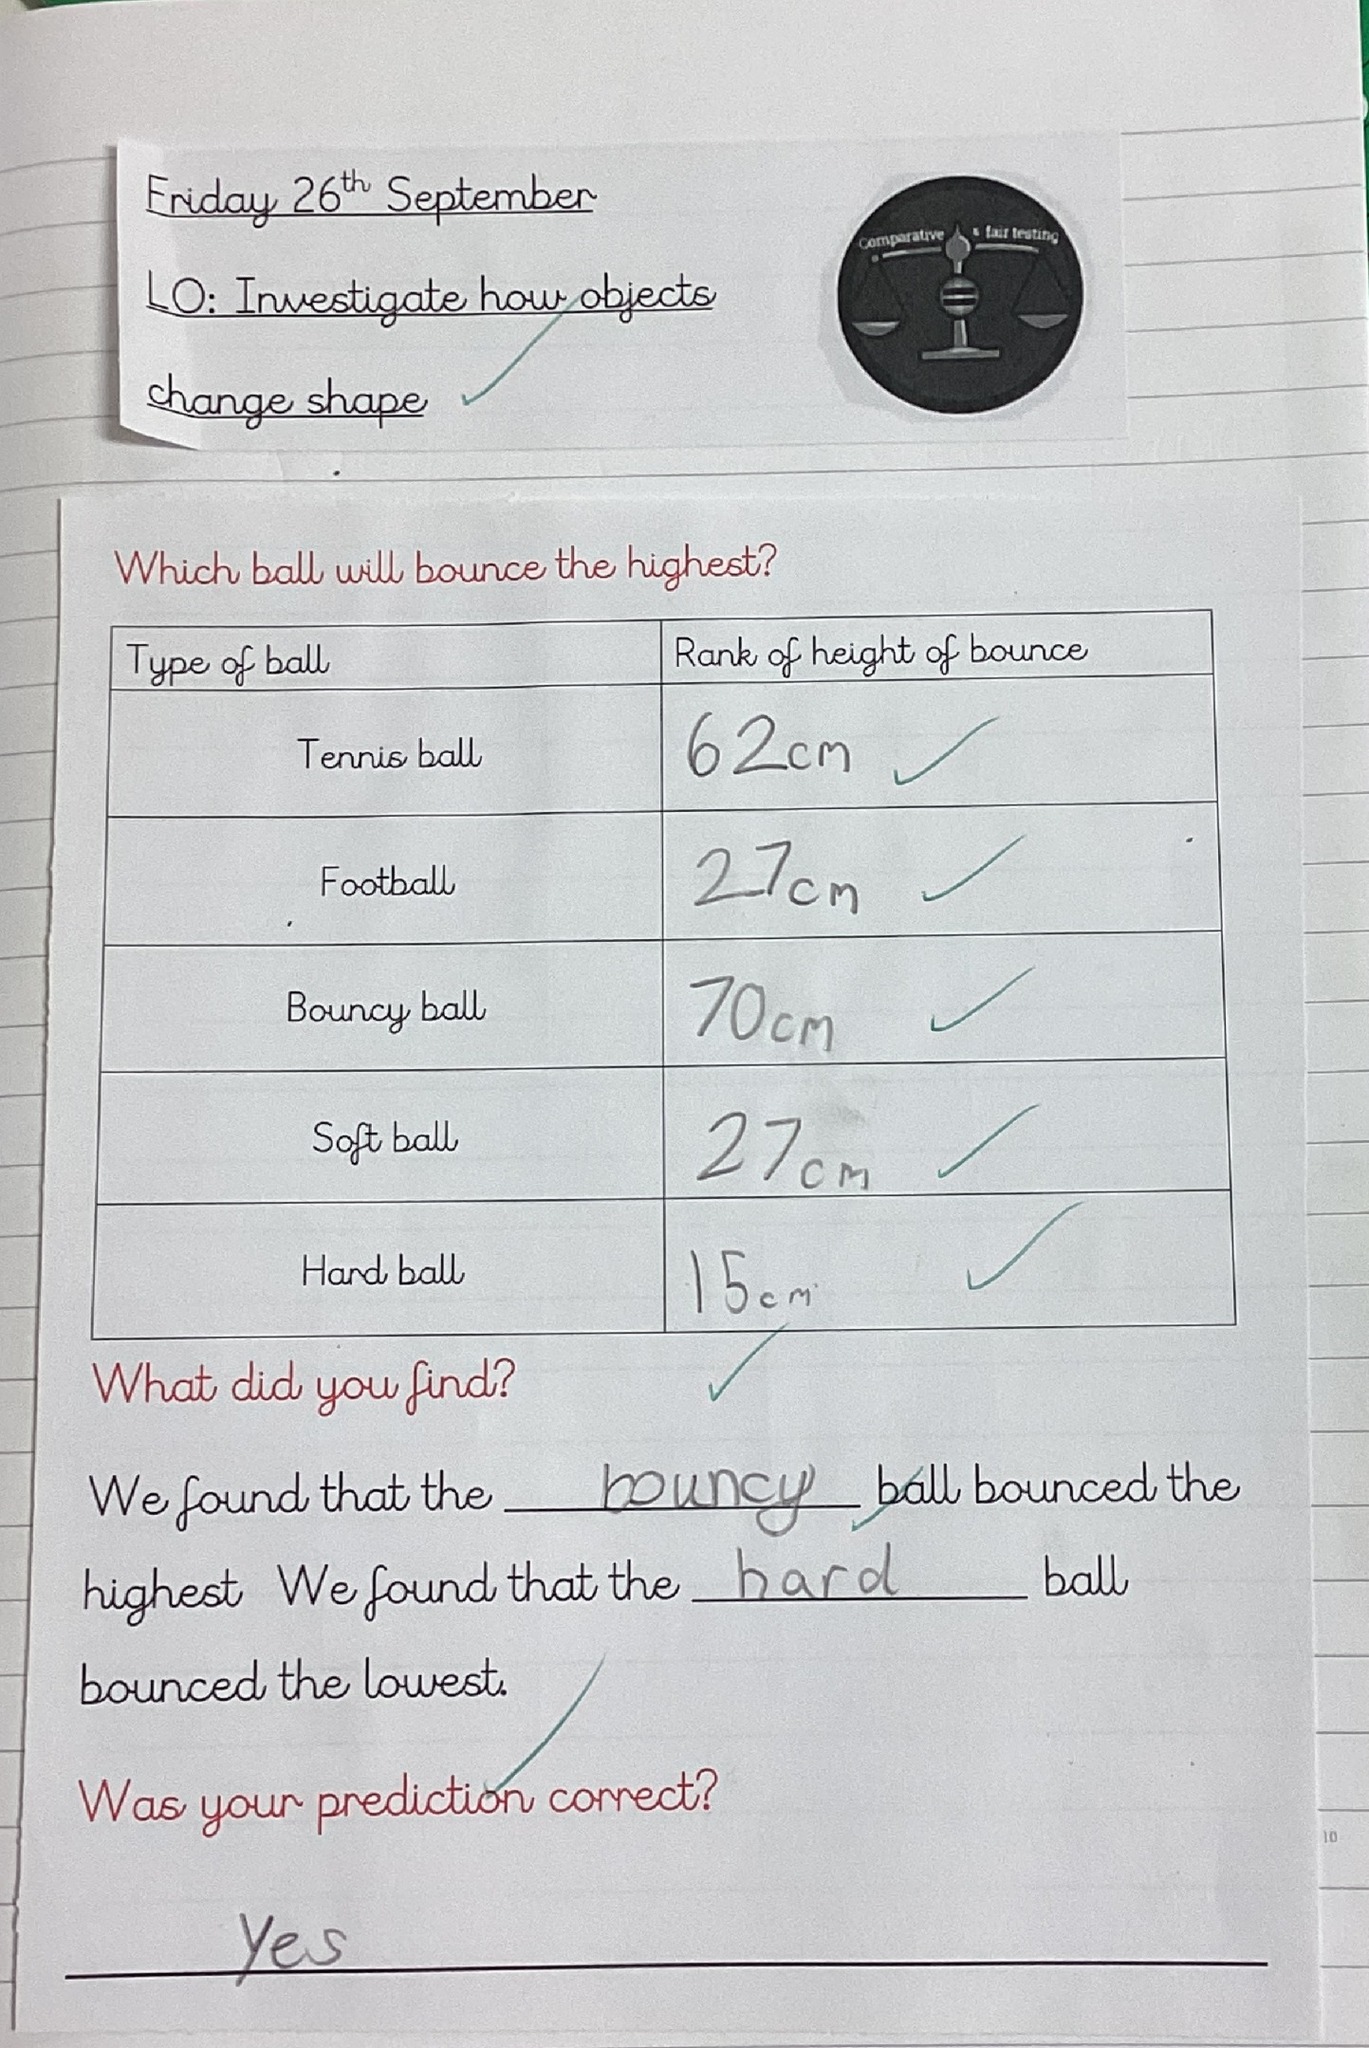 Friday 26th September
Comparative & fair testing
LO: Investigate how objects
change shape
Which ball will bounce the highest?
Type of ball Rank of height of bounce
Tennis ball 62cm
Football 27cm
Bouncy ball 70cm
Soft ball 27cm
Hard ball 15cm
What did you find?
We found that the bouncy ball bounced the
highest We found that the hard ball
bounced the lowest.
Was your prediction correct?
10
Yes